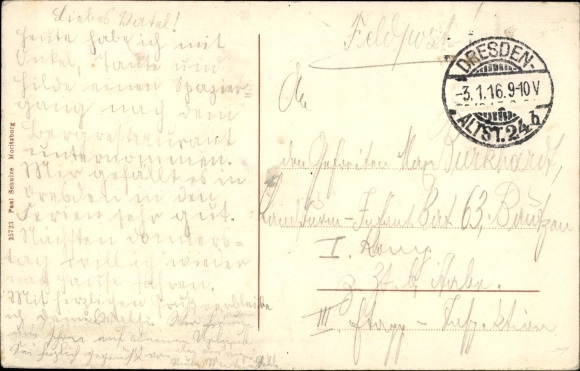 Liebes Vatel!
Heute habe ich mit
Onkel, Tante und
Hilde einen Spazier-
gang nach dem
Bergrestaurant
unternommen.
Mir gefällt es in
Dresden in den
Ferien sehr gut.
Nächsten Donners-
tag will ich wieder
nach Hause fahren.
Mit herzlichen Gruß verbleibe
ich Deine
35723 Paul Schulze Moritzburg
Feldpost
DRESDEN-
-3.1.16.9-10V
ALTST.24h
An
den Gefreiten Max Burkhardt,
Landsturm-Infant Bat 63, Bautzen
I. Komp.
z. Zt. b.
III Etapp-Inspektion